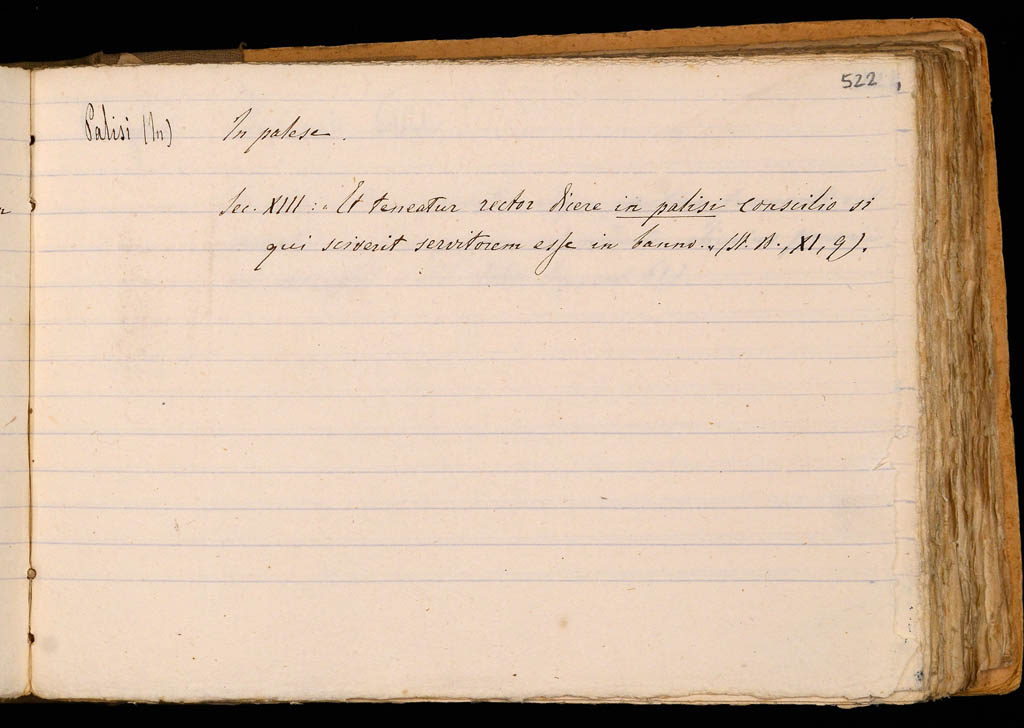 522
Palisi (In) In palese.
Sec. XIII: « Et teneatur rector dicere in palisi conscilio si
qui sciverit servitorem esse in banno. » (St. B., XI, 9).